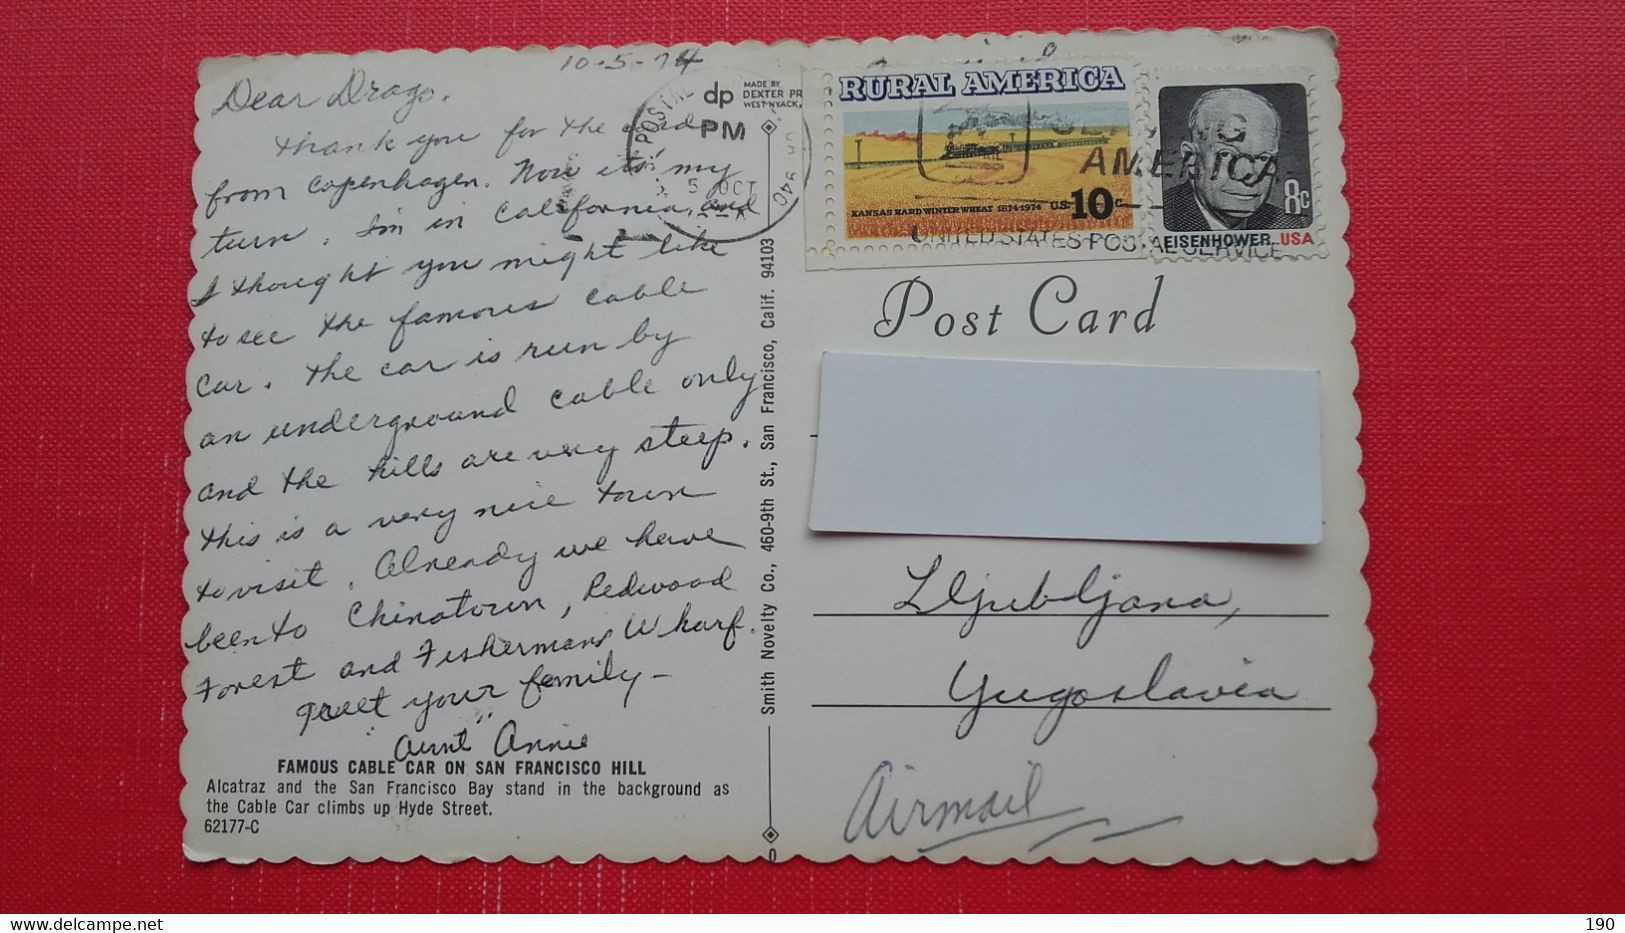 10-5-74
Dear Drago,
Thank you for the card
from Copenhagen. Now it's my
turn. I'm in California and
I thought you might like
to see the famous cable
car. The car is run by
an underground cable only
and the hills are very steep.
This is a very nice town
to visit. Already we have
been to Chinatown, Redwood
Forest and Fishermans Wharf.
Greet your family -
"Aunt" Annie
FAMOUS CABLE CAR ON SAN FRANCISCO HILL
Alcatraz and the San Francisco Bay stand in the background as
the Cable Car climbs up Hyde Street.
62177-C
POSTAL
PM
5 OCT
CA 940
dp
MADE BY
DEXTER PR
WEST NYACK,
Smith Novelty Co., 460-9th St., San Francisco, Calif. 94103
RURAL AMERICA
KANSAS HARD WINTER WHEAT 1874·1974 U.S. 10c
8c
EISENHOWER USA
AMERICA
UNITED STATES POSTAL SERVICE
Post Card
Ljubljana,
Yugoslavia
Airmail
190